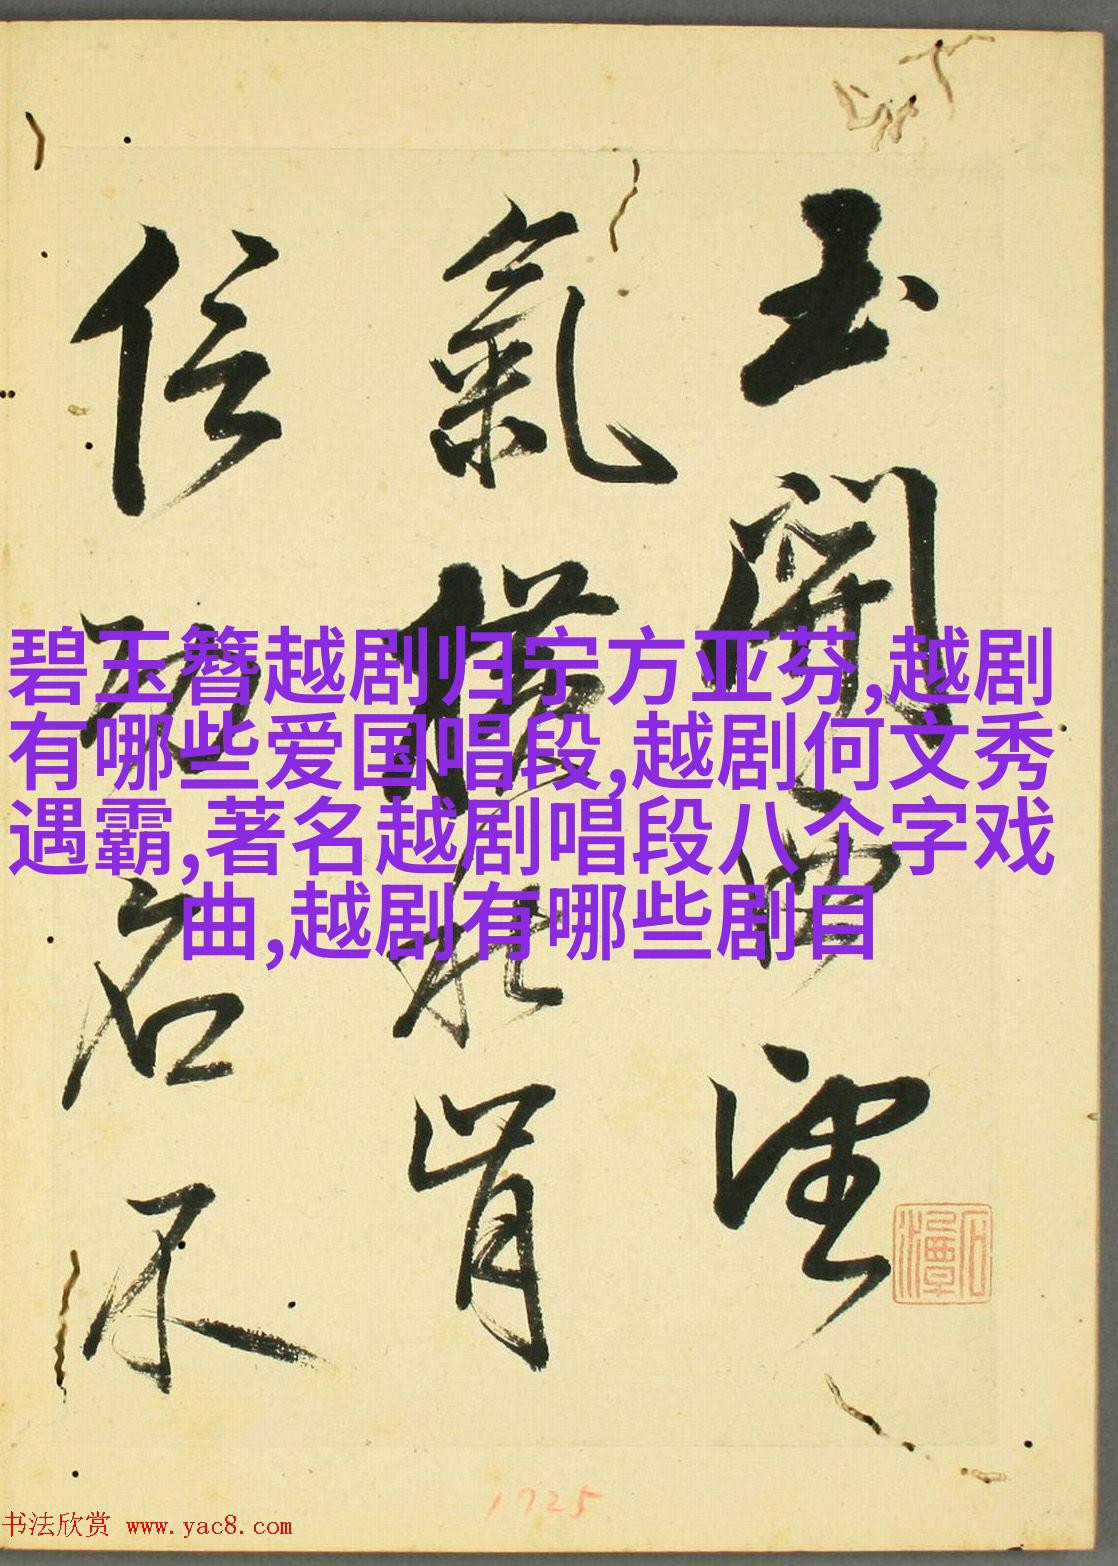 玉關西望
氣橫秋肯
信功名不
碧玉簪越剧归宁方亚芬,越剧
有哪些爱国唱段,越剧何文秀
遇霸,著名越剧唱段八个字戏
曲,越剧有哪些剧目
1725
书法欣赏 www.yac8.com